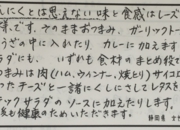 んにくとは思えない味と食感はレーズ
等です。そのままおつまみ、ガーリックトー
うどの中に入れたり、カレーに加えます
ラダにも、いずれも食材のまとめ役で
つまみは肉(ハム、ウィンナー、焼とり)サイコロ
たチーズと一緒にくしにさしてレタスを
ックサラダのソースに加えたりします。
も健康のためいただきます。
静岡県